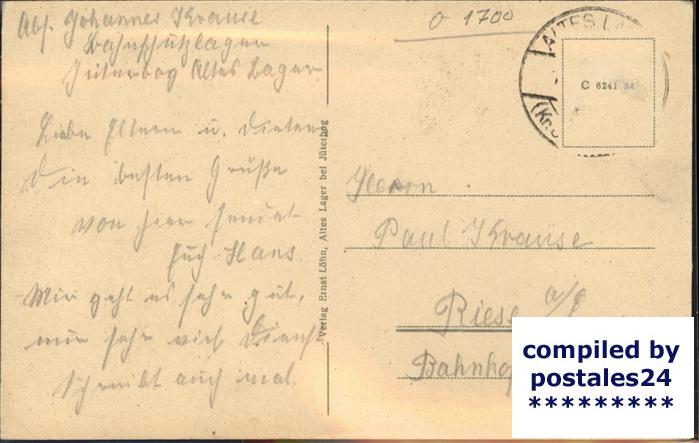 Abs. Johannes Krause
Bahnschutzlager
Jüterbog Altes Lager
Liebe Eltern u. Dieter
Die besten Grüße
von hier sendet
Euch Hans.
Mir geht es sehr gut,
nur sehr viel Dienst
Schreibt auch mal.
Verlag Ernst Löhn, Altes Lager bei Jüterbog
0 1700
ALTES LA
(Kr.
C 6241 34
Herrn
Paul Krause
Riesa a/E
Bahnhof
compiled by
postales24
*********